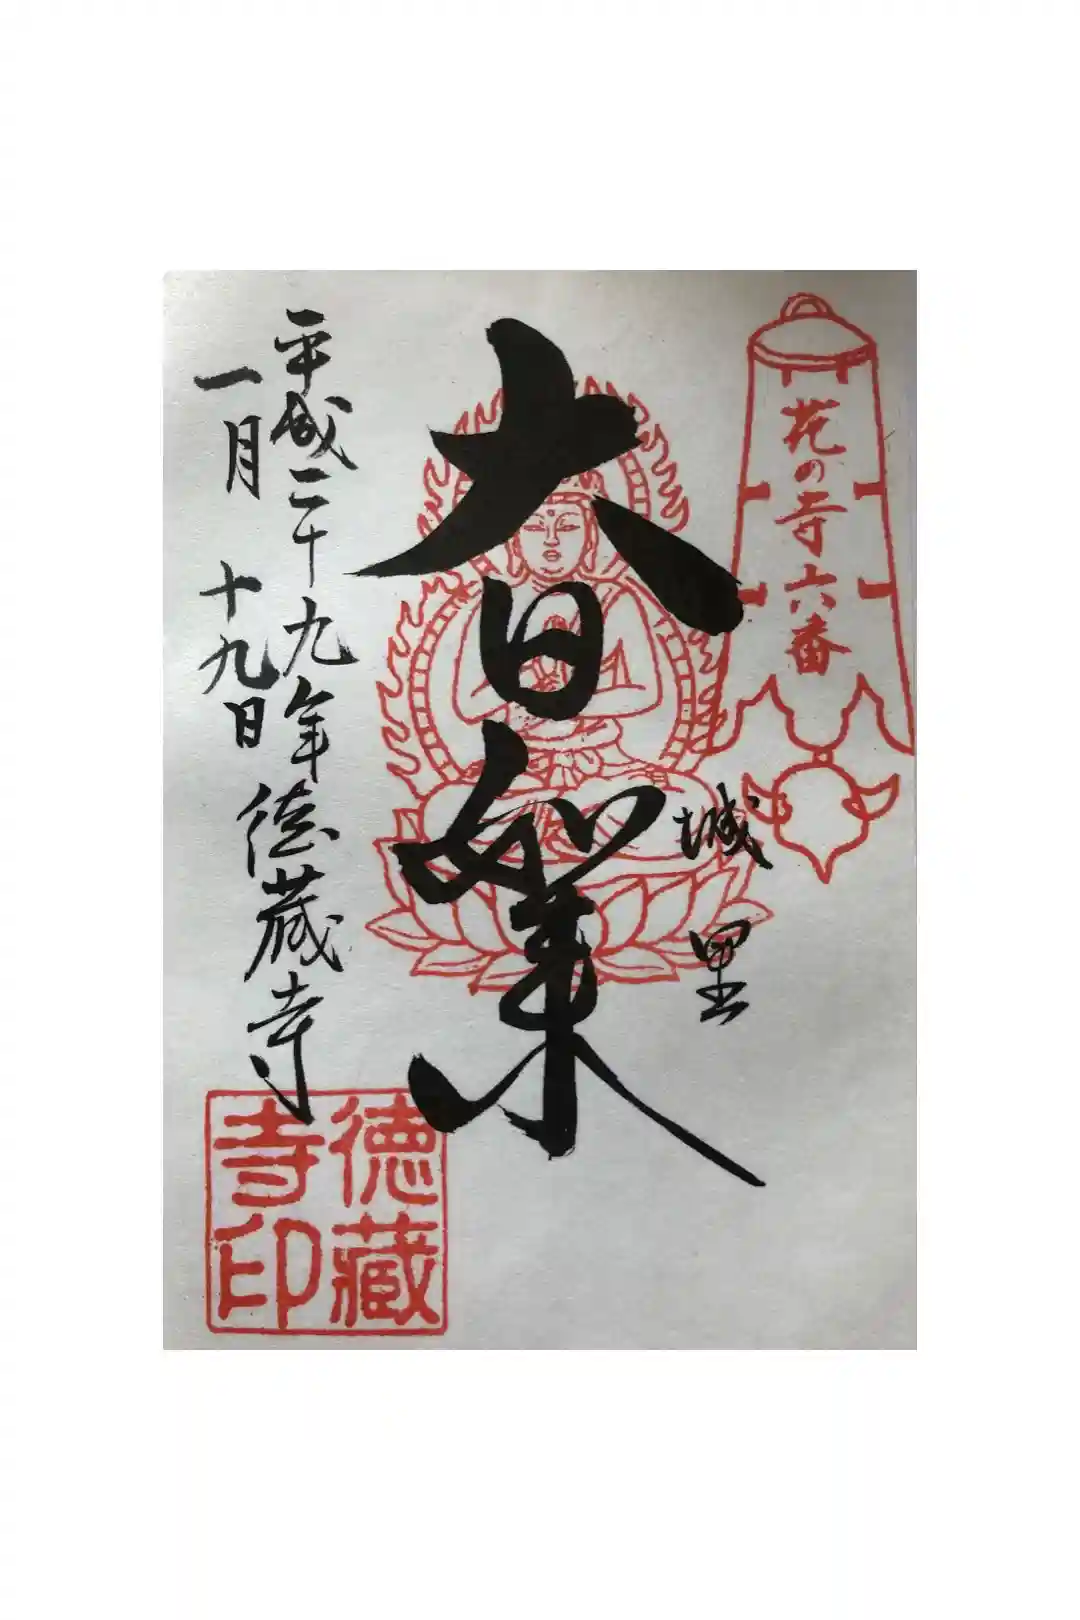 花の寺六番
城里
大日如来
平成二十九年
一月 十九日
徳蔵寺
徳蔵
寺印